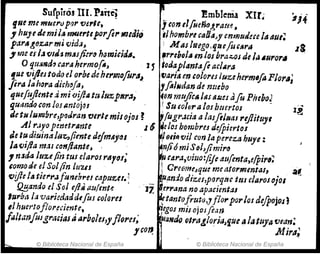 Sufpirós III. Parte;
que me muero por verte,
y huye de mi la muerte por ser medio
para gozar mi vida,
y me es la vida mas fiero homicida.
O quando cara hermosa,
que viftes todo el orbe de hermosura,
fera la hora dichosa,
que sufriente à mi vista tu luz pura,
quando con los antojos
de tu lumbre, podran verte mis ojos?
Al rayo penetrante
de tu diuina luz, siente desmayos
la vista mas constante,
y nada luze sin tus claros rayos,
como de el Sol sin luzes
viste la tierra funebres capuzes.
Quando el Sol està ausente
turba la variedad de sus colores
el huerto floreciente,
faltan sus gracias à arboles, y flores;
y con
Emblema XII.
234
y con el sueño grave,
el hombre calla, y enmudece la aue.
Mas luego que su cara
arrebola en los brazos de la aurora
toda planta se aclara
varia en colores luze hermosa Flora,
y saludan de nuebo
con musica las aues à su Phebo.
Su color a los huertos
y su gracia a las selvas restituye
de los hombres despiertos
el ocio vil con la pereza huye:
ansi ô mi Sol, si miro
tu cara, vivo; si se ausenta, espiro.
Creeme, que me atormentas,
quando dizes, porque tus claros ojos
serrana no apacientas
de tanto fruto, y flor por los despojos?
ciegos mis ojos sean
quando otra gloria, que a la tuya vean.
Mira;
15
16
17
18
19
20
21
© Biblioteca Nacional de España
© Biblioteca Nacional de España